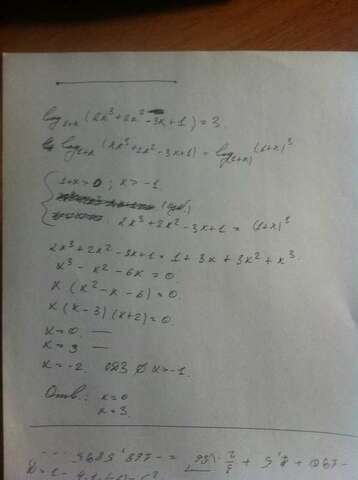 log₁₊ₓ (2x³+2x²-3x+1) = 3.
log₁₊ₓ (2x³+2x²-3x+1) = log₍₁₊ₓ₎ (1+x)³
1+x>0 ; x>-1.
2x³+2x²-3x+1 = (1+x)³
2x³+2x²-3x+1 = 1+3x+3x²+x³.
x³-x²-6x=0
x(x²-x-6)=0.
x(x-3)(x+2)=0.
x=0. —
x=3 —
x=-2. ОДЗ x>-1.
Ответ.: x=0
x=3.